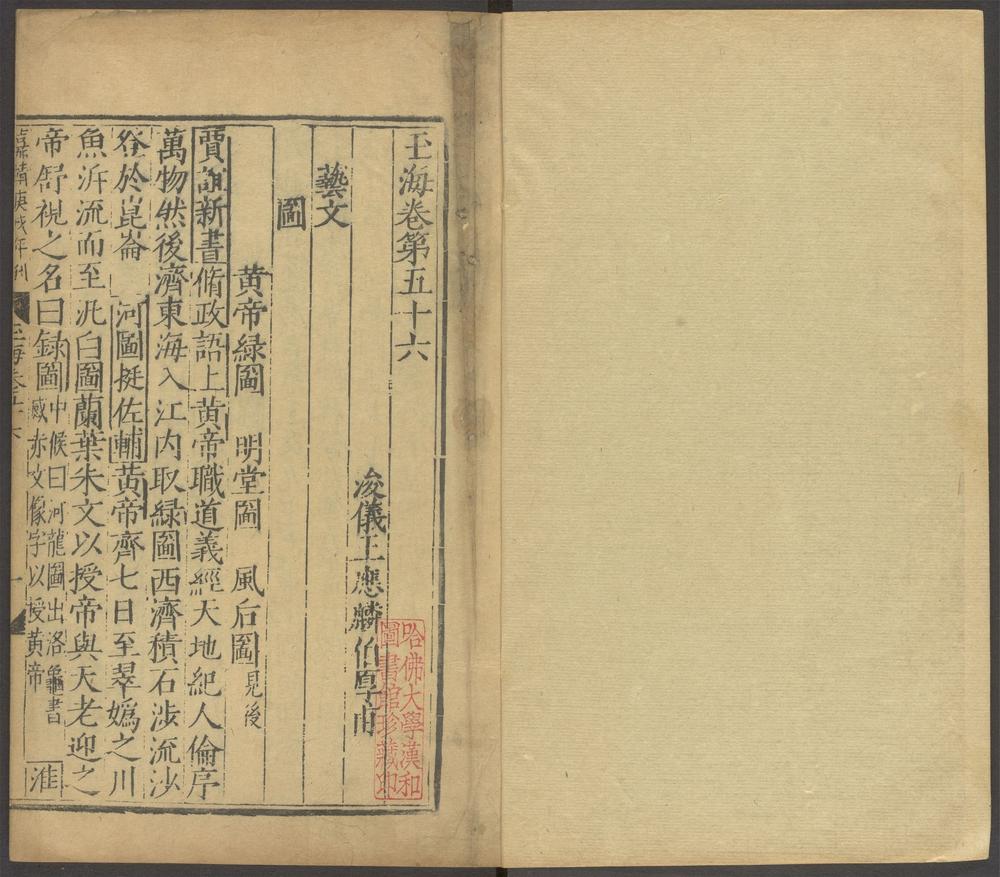 玉海卷第五十六
浚儀王應麟伯厚甫
藝文
圖
黃帝綠圖 明堂圖 風后圖見後
賈誼新書脩政語上黃帝職道義經天地紀人倫序
萬物然後濟東海入江內取綠圖西濟積石涉流沙
登於崑崙 河圖挺佐輔黃帝齊七日至翠嬀之川
魚泝流而至汎白圖蘭葉朱文以授帝與天老迎之
帝舒視之名曰録圖中候曰河龍圖出洛龜書
威赤文像字以授黃帝 淮
嘉靖庚戌年刊
玉海卷五十六
一
哈佛大學漢和
圖書館珍藏印